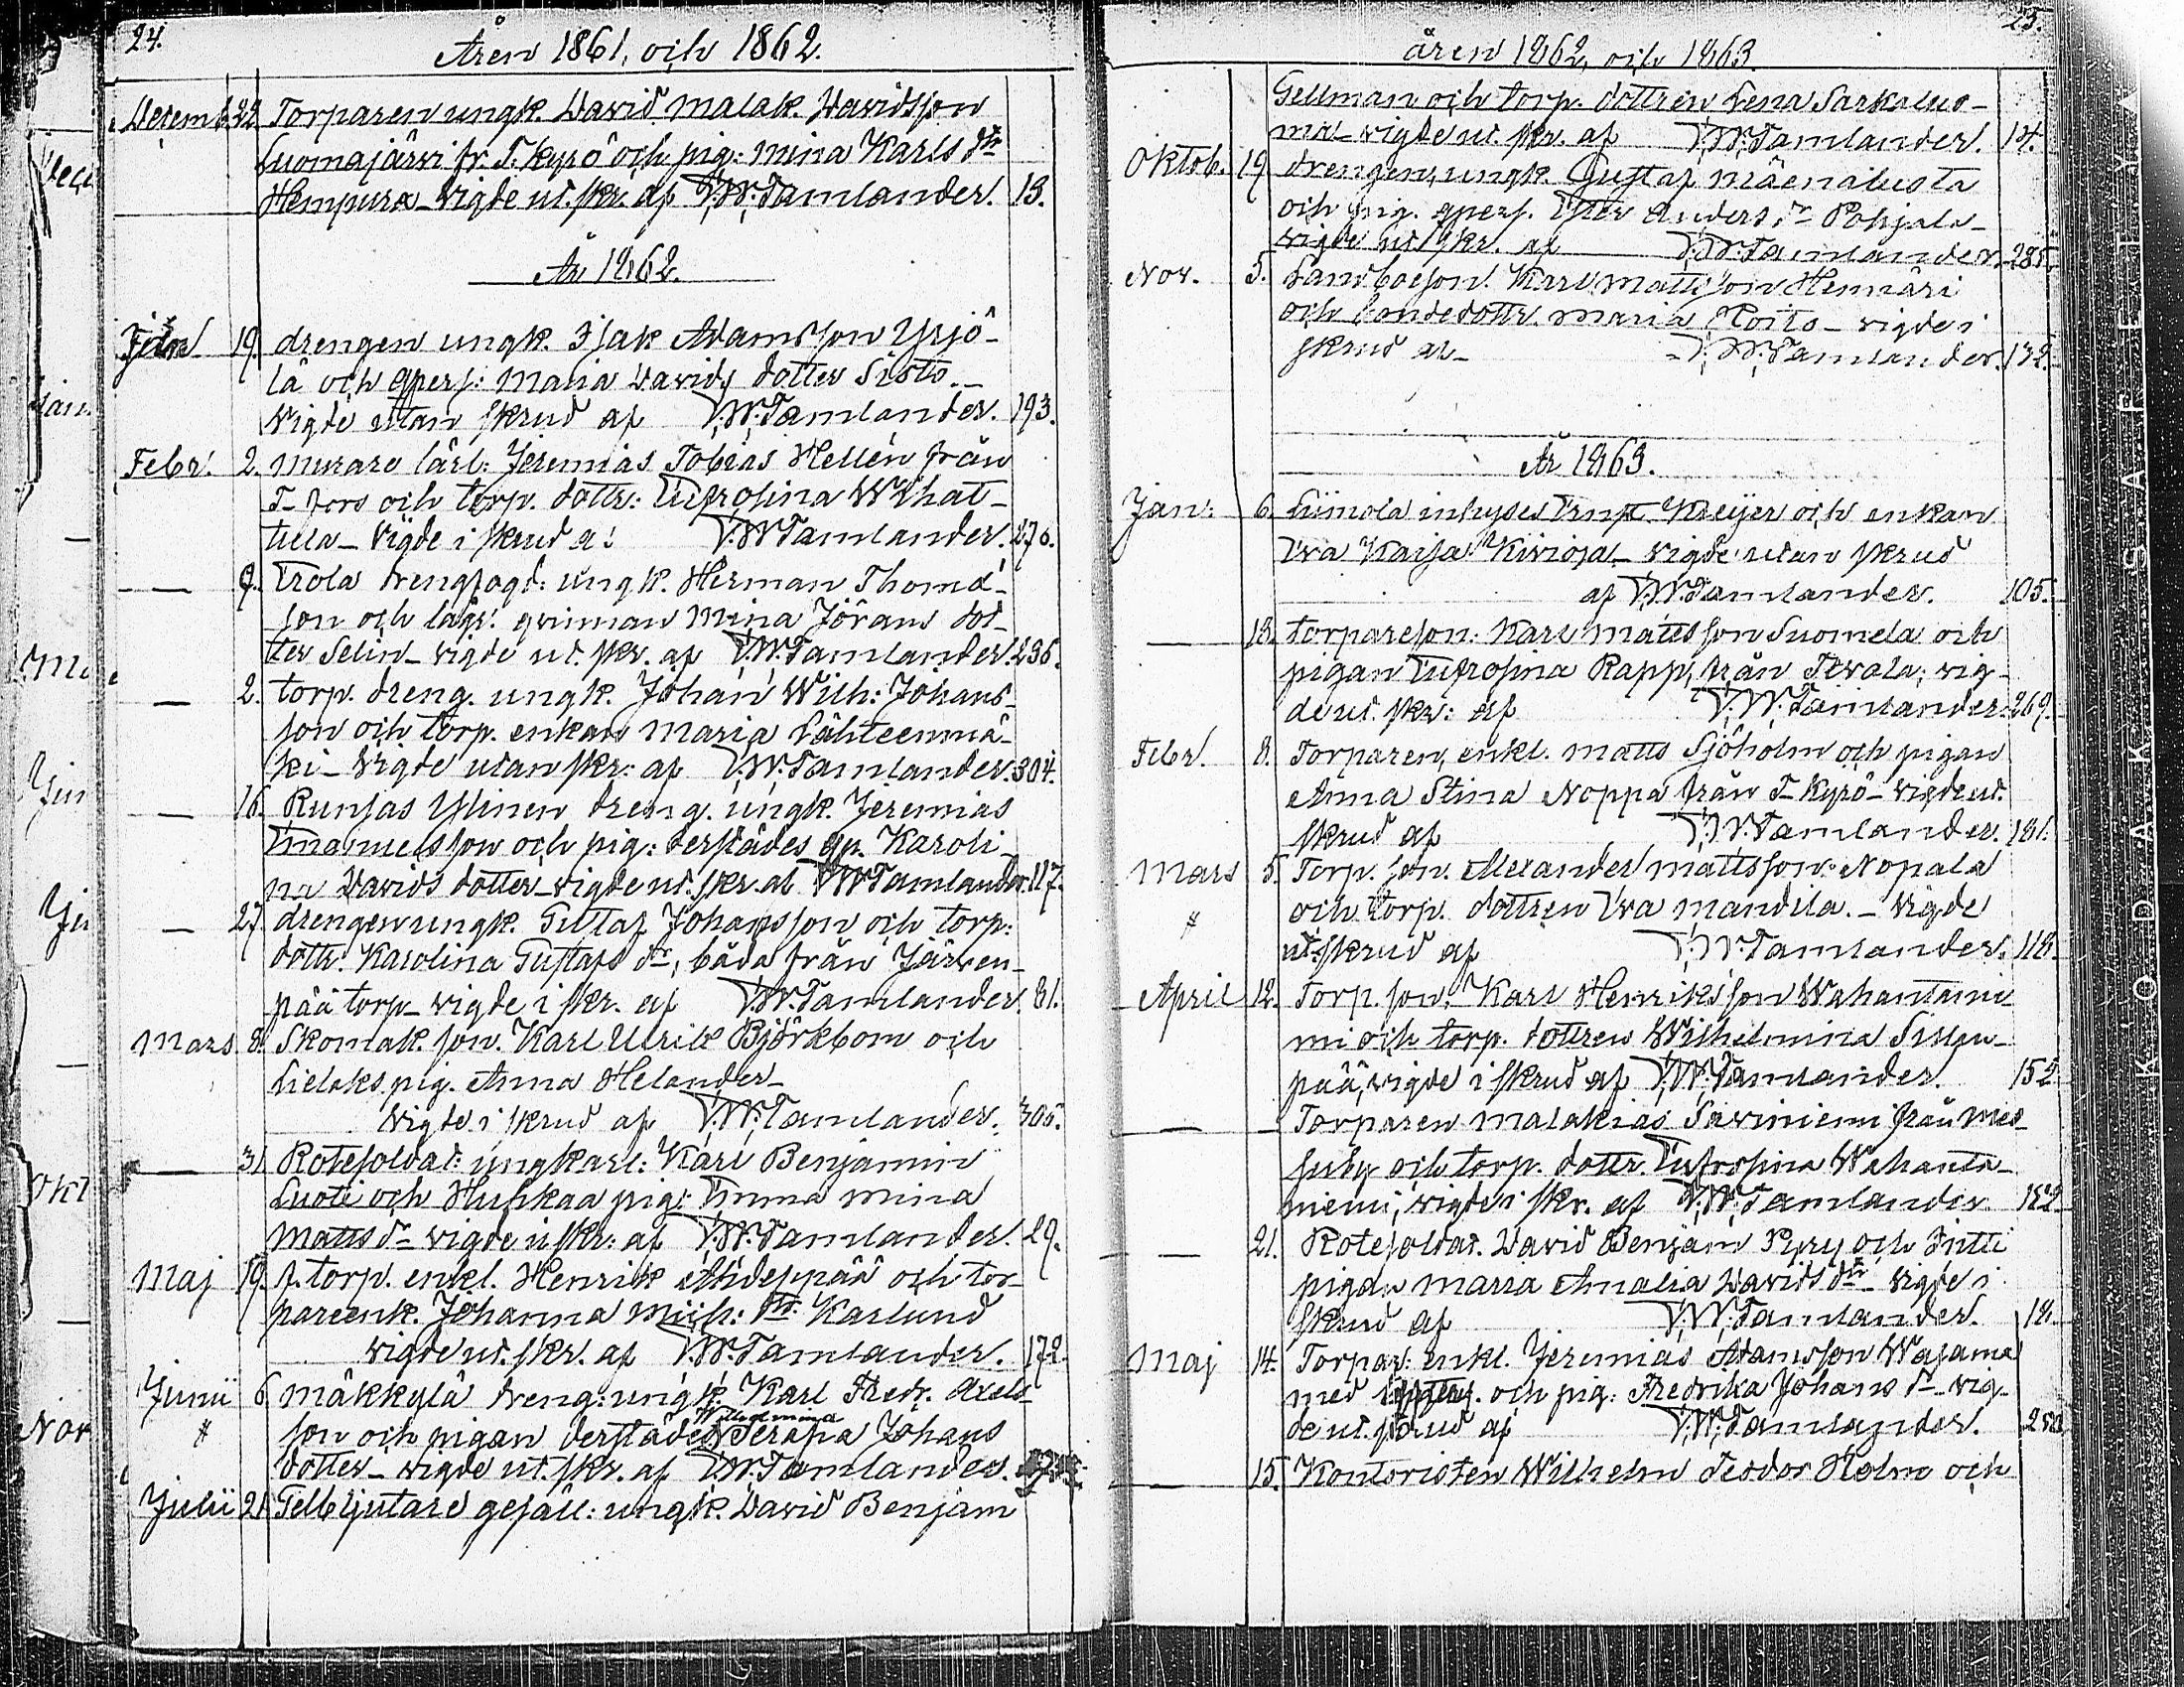 24.
Åren 1861, och 1862.
Decemb. 22. Torparen ungk. David Malak. Davidsson
Luomajärvi fr. T. Kyrö och pig: Mina Karls dr
Hempura _ vigde ut. skr. af V.W. Tamlander. 13.
År 1862.
19. drengen ungk. Isak Adamsson Yrjö-
lä och qpers: Maja Davids dotter Sisto._
vigde utan skrud af V.W. Tamlander. 193.
Febr. 2. Murare lärl: Jeremias Tobias Hellén från
T-fors och torp. dottr: Eufrosina Wihat-
tula _ vigde i skrud a: V.W. Tamlander. 276.
— 9. Erola drengfogd: ungk. Herman Thoma-
son och lägs: qvinnan Mina Jörans dot-
ter Selin _ vigde ut. skr. af V.W. Tamlander. 236.
— 2. torp. dreng. ungk. Johan Wilh: Johans-
son och torp. enkan Maria Lähteenmä-
ki _ vigde utan skr: af V.W. Tamlander. 304.
— 16. Runsas Ylinen dreng. ungk. Jeremias
Emanuelsson och pig: derstädes qp. Karoli-
na Davids dotter _ vigde ut. skr. af V.W. Tamlander. 117.
— 27. drengen ungk. Gustaf Johansson och torp:
dottr. Karolina Gustafs dr, båda från Järven-
pää torp _ vigde i skr. af V.W. Tamlander. 81.
Mars 8. Skomak. son. Karl Ulrik Björkbom och
Lielaks pig. Anna Helander _
vigde i skrud af V.W. Tamlander. 305.
— 31 Rotesoldat: ungkarl: Karl Benjamin
Luoti och Huhkaa pig: Emma Mina
Matts dr _ vigde i skr: af V.W. Tamlander. 29.
Maj 19. f. torp. enkl. Henrik Ahdeppää och tor-
pareenk. Johanna Mich: dr. Karlund
vigde ut. skr. af V.W. Tamlander. 172.
Junii 6 Mäkkylä dreng: ungk: Karl Fredr. Axels-
Wilhelmina
son och pigan derstädes Serafia Johans
dotter _ vigde ut. skr. af V.W. Tamlander.
Julii 21. Gelbgjutare gesäll: ungk. David Benjam
25.
åren 1862, och 1863.
Gellman och torp. dottren Lena Sarkaluo-
ma _ vigde ut. skr. af V.W. Tamlander. 14.
Oktob. 19 drengen, ungk. Gustaf Mäenalusta
och pig. qpers. Ester Anders dr Pohjala _
vigde ut skr. af V.W. Tamlander. 285.
Nov. 5. Landboeson. Karl Mattsson Heinäri
och bondedottr. Maria Hoito _ vigde i
skrud af _ V.W. Tamlander. 132.
År 1863.
Jan: 6. Liimola inhyses Krеijer och enkan
Eva Kaisa Kivioja _ vigde utan skrud
af V.W. Tamlander. 105.
— 13. torpareson: Karl Mattsson Suomela och
pigan Eufrosina Rapp, från Tevala, vig-
de ut. skr: af V.W. Tamlander. 269.
Febr. 8. Torparen, enkl. Matts Sjöholm och pigan
Anna Stina Noppa från T-Kyrö _ vigde ut.
skrud af V.W. Tamlander. 181.
Mars 5. Torp. son. Alexander Mattsson Nopala
och torp. dottren Eva Mandila. _ vigde
ut. skrud af V.W. Tamlander. 118.
April 12. Torp. son. Karl Henriksson Wahantanie
mi och torp. dottren Wilhelmina Sillan-
pää, vigde i skrud af V.W. Tamlander. 152
— Torparen Malakias Saviniemi från Mes-
suby och torp. dottr. Eufrosina Wahanta-
niemi, vigde i skr. af V.W. Tamlander 152
— 21. Rotesoldat. David Benjam Pyry och Intti
pigan Maria Amalia Davids dr _ vigde i
skrud af V.W. Tamlander. 18.
Maj 14. Torpar: enkl. Jeremias Adamsson Wajama
med och pig: Fredrika Johans dr _ vig-
de ut. skrud af V.W. Tamlander.
— 15. Kontoristen Wilhelm Teodor Holm och
KODAK SAFETY